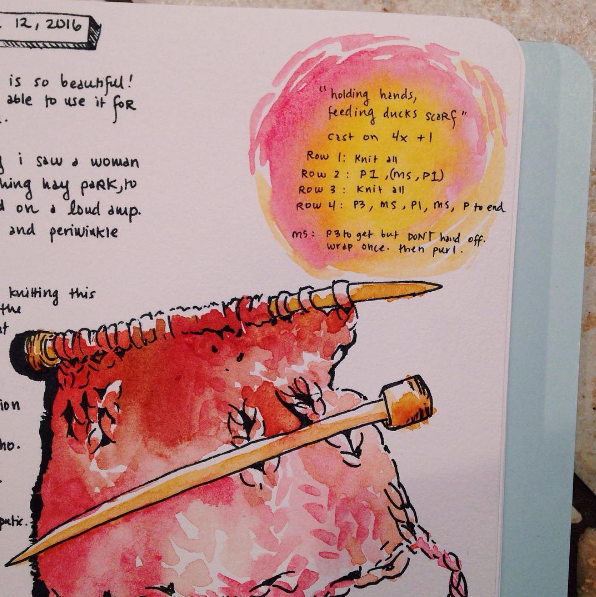 12, 2016
is so beautiful!
able to use it for
i saw a woman
hay park, to
on a loud amp.
and periwinkle
knitting this
the
"holding hands,
feeding ducks scarf"
cast on 4x +1
Row 1: Knit all
Row 2: P1, (MS, P1)
Row 3: Knit all
Row 4: P3, MS, P1, MS, P to end
MS: P3 tog et but DON'T hand off.
wrap once. then purl.